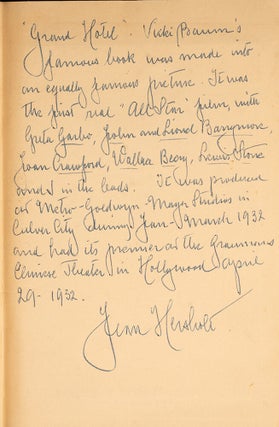 "Grand Hotel". Vicki Baum's
famous book was made into
an equally famous picture. It was
the first real "All Star" film, with
Greta Garbo, John and Lionel Barrymore,
Joan Crawford, Wallace Beery, Lewis Stone
and I in the leads. It was produced
at Metro-Goldwyn-Mayer Studios in
Culver City during Jan-March 1932
and had its premier at the Graumans
Chinese Theater in Hollywood April
29-1932.
Jean Hersholt.